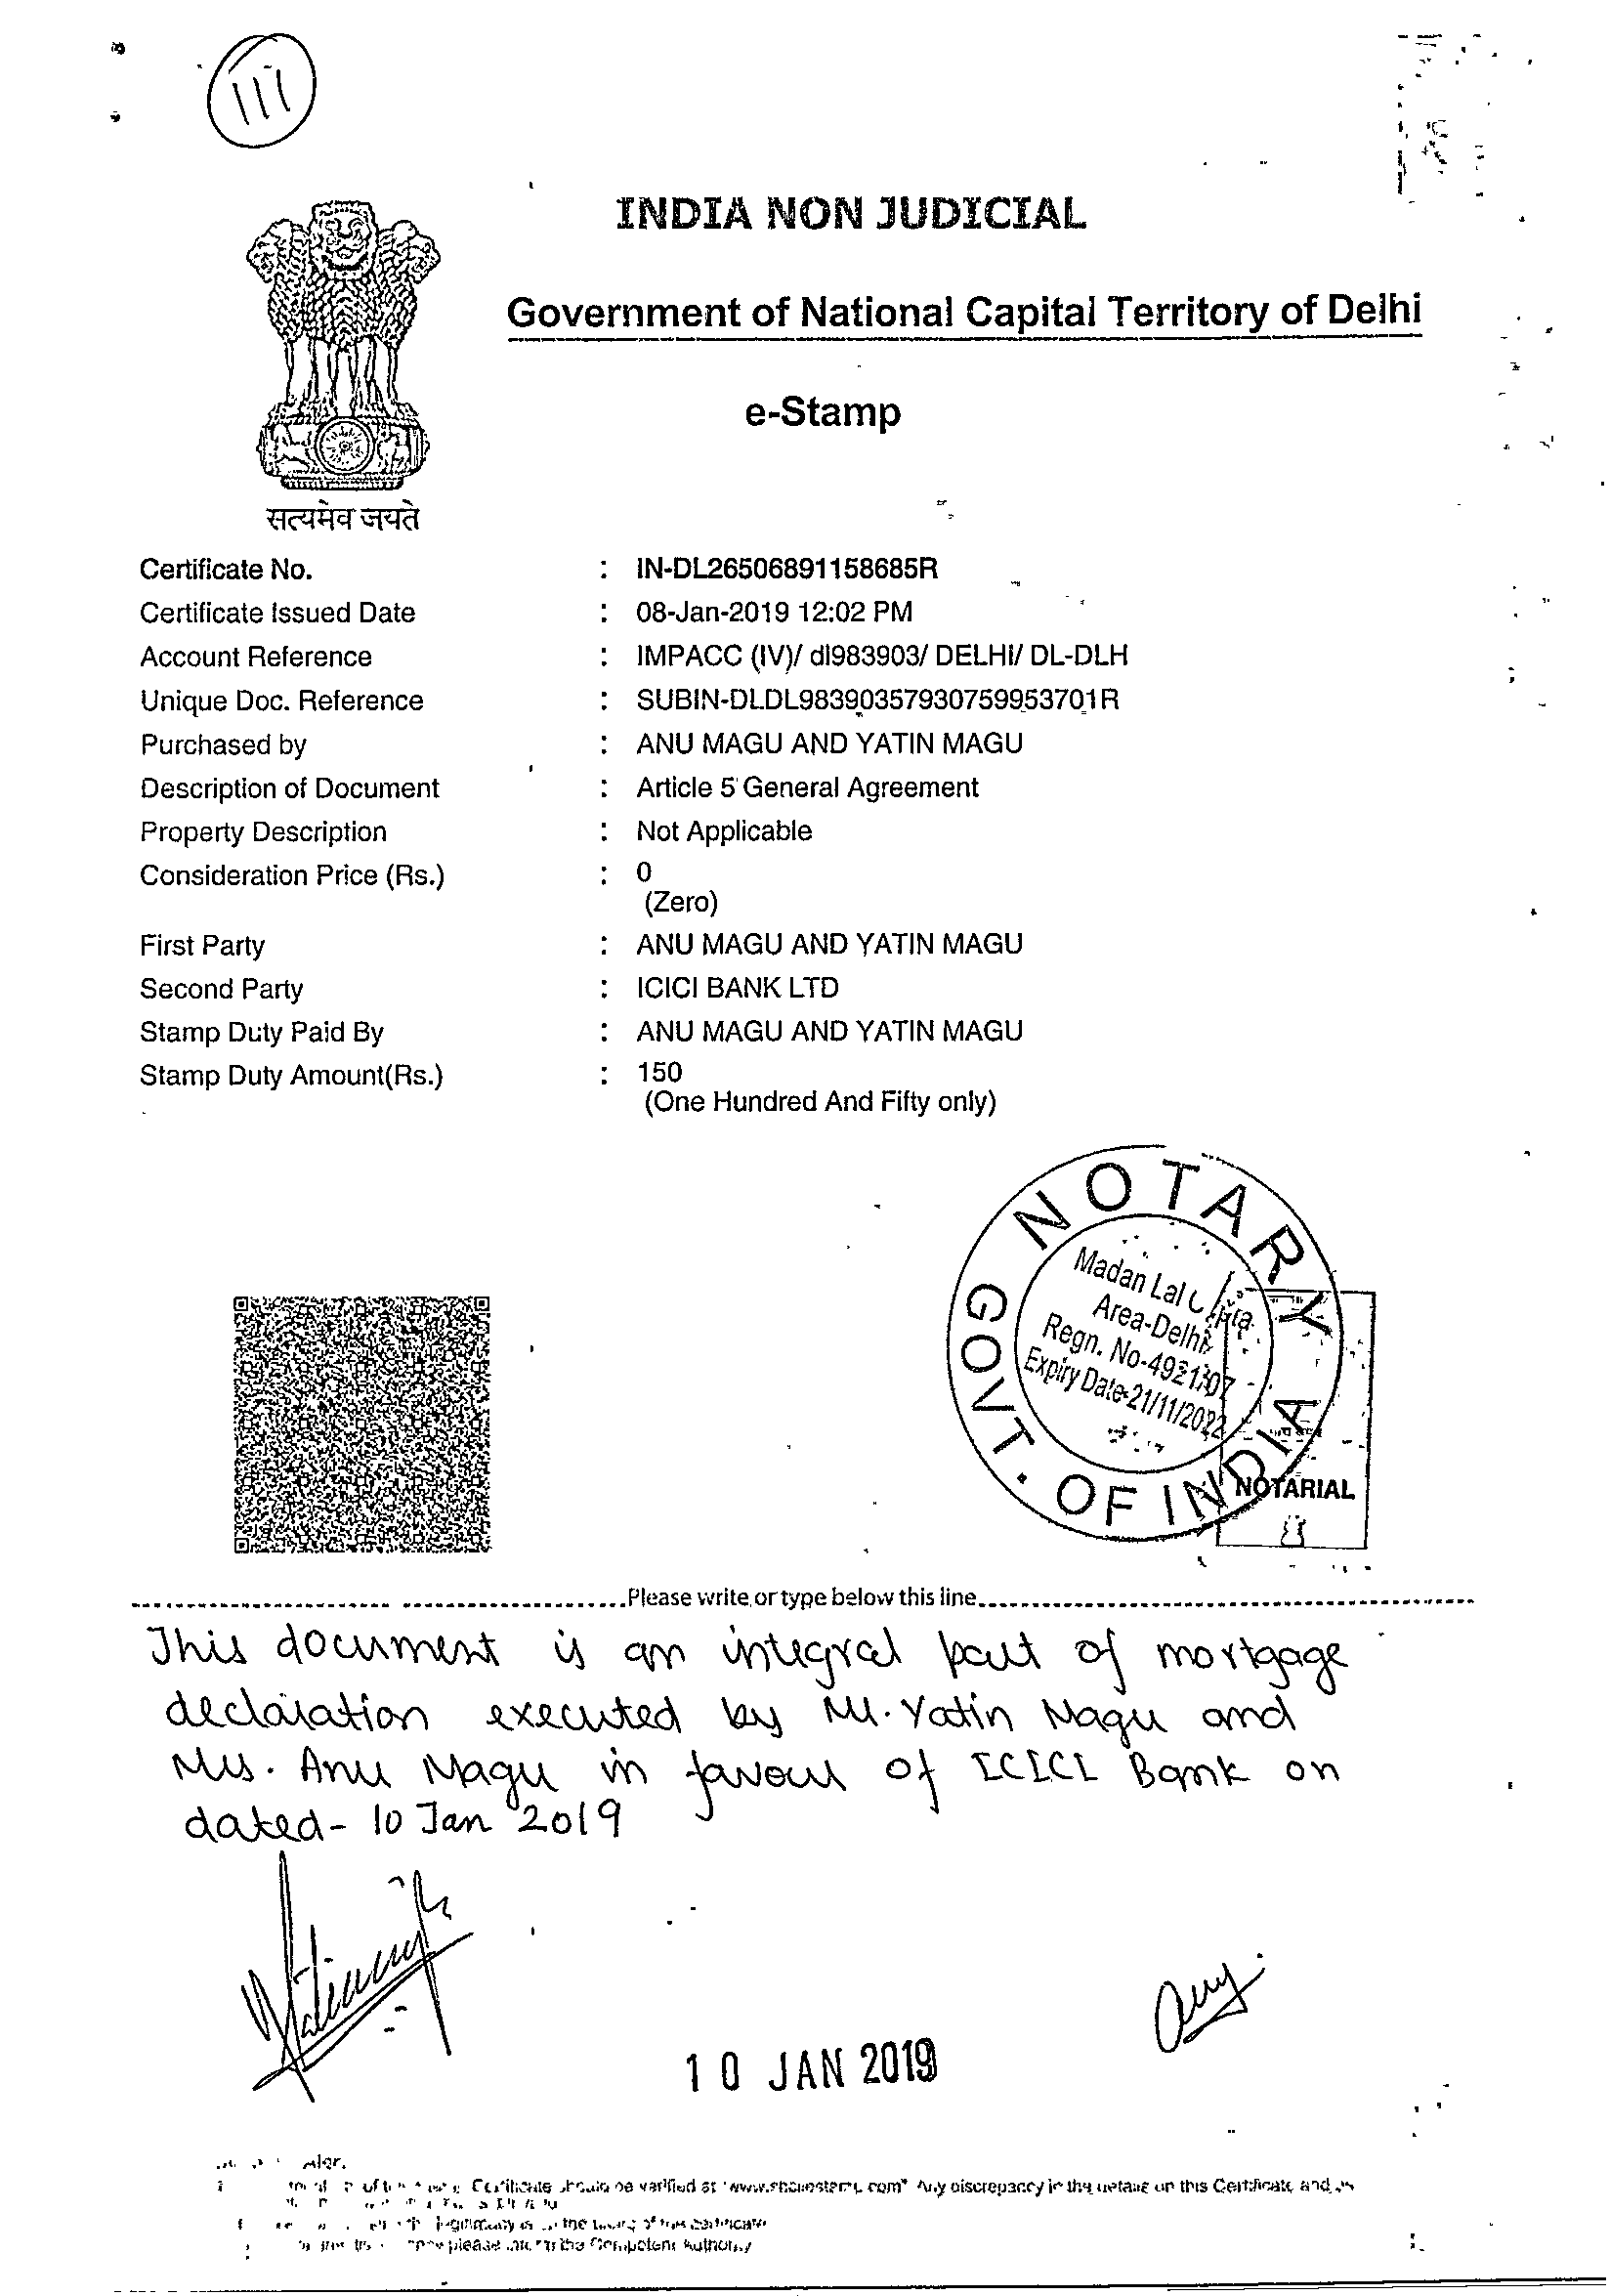 III
INDIA NON JUDICIAL
Government of National Capital Territory of Delhi
e-Stamp
सत्यमेव जयते
Certificate No. : IN-DL26506891158685R
Certificate Issued Date : 08-Jan-2019 12:02 PM
Account Reference : IMPACC (IV)/ dl983903/ DELHI/ DL-DLH
Unique Doc. Reference : SUBIN-DLDL98390357930759953701R
Purchased by : ANU MAGU AND YATIN MAGU
Description of Document : Article 5 General Agreement
Property Description : Not Applicable
Consideration Price (Rs.) : 0
(Zero)
First Party : ANU MAGU AND YATIN MAGU
Second Party : ICICI BANK LTD
Stamp Duty Paid By : ANU MAGU AND YATIN MAGU
Stamp Duty Amount(Rs.) : 150
(One Hundred And Fifty only)
NOTARY
GOVT. OF INDIA
Madan Lal
Area-Delhi
Regn. No-
Expiry Date-21/11/2022
NOTARIAL
Please write or type below this line
This document is an integral part of mortgage
declaration executed by Mr. Yatin Magu and
Mrs. Anu Magu in favour of ICICI Bank on
dated- 10 Jan 2019
10 JAN 2019
Certificate should be verified at "www.shcilestamp.com" Any discrepancy in the details on this Certificate and
please the Competent Authority